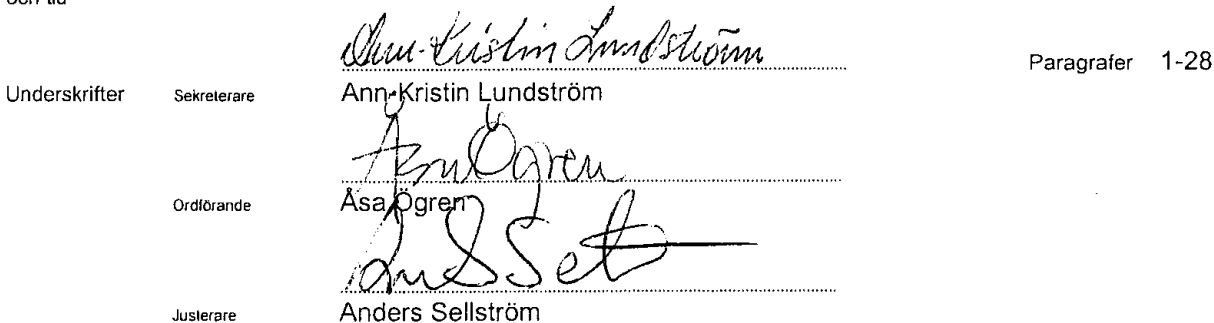 Ann-Kristin Lundström
Paragrafer 1-28
Underskrifter Sekreterare Ann-Kristin Lundström
Åsa Ögren
Ordförande Åsa Ögren
Justerare Anders Sellström